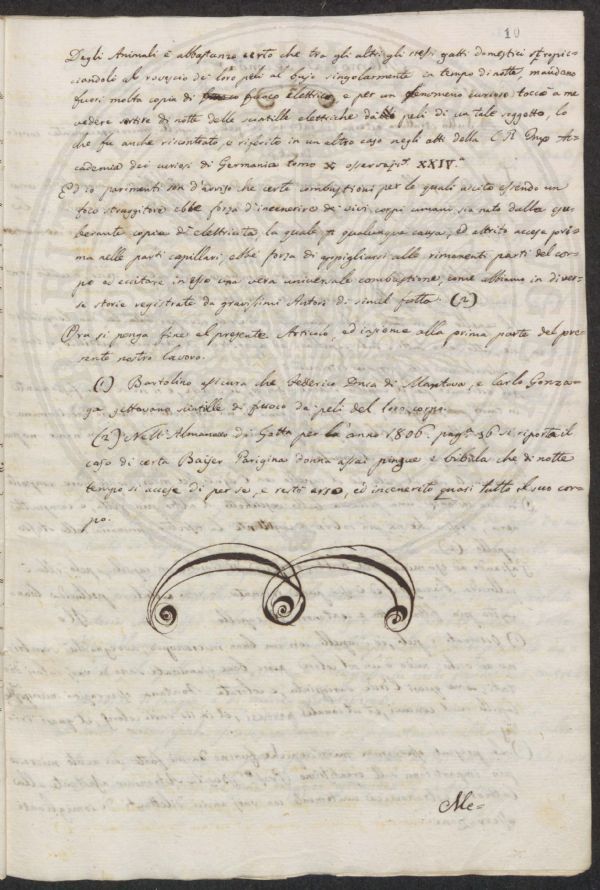 10
Degli Animali è abbastanza certo che tra gli altri gli stessi gatti domestici stropic-
ciandoli al rovescio de' loro peli al bujo singolarmente in tempo di notte, mandano
fuori molta copia di fuoco elettrico, e per un fenomeno curioso toccò a me
vedere sortire di notte delle scintille elettriche da' peli di un tale soggetto, lo
che fu anche riscontrato, e riferito in un altro caso negli atti della C. R. Imp. Ac-
cademia dei curiosi di Germania tomo X osservaz. XXIV.
Ed io parimenti son d'avviso che certe combustioni per le quali uscito essendo un
foco struggitore ebbe forza d'incenerire de' vivi corpi umani, sia nato dalla esu-
berante copia di elettricità, la quale p qualunque causa, ed attrito accesa pri-
ma nelle parti capillari, ebbe forza di appigliarsi alle rimanenti parti del cor-
po ed eccitare in esso una vera universale combustione, come abbiamo in diver-
se storie registrate da gravissimi Autori di simil fatta. (2)
Ora si ponga fine al presente Articolo, ed insieme alla prima parte del pre-
sente nostro lavoro.
(1) Bartolino assicura che Federico Duca di Mantova, e Carlo Gonza-
ga gettavano scintille di fuoco da' peli del loro corpo.
(2) Nell' Almanacco di Gotta per l'anno 1806. pag. 36 si riporta il
caso di certa Baijer Parigina donna assai pingue e bibula che di notte
tempo si accese di per se, e restò arso, ed incenerito quasi tutto il suo cor-
po.
Me=